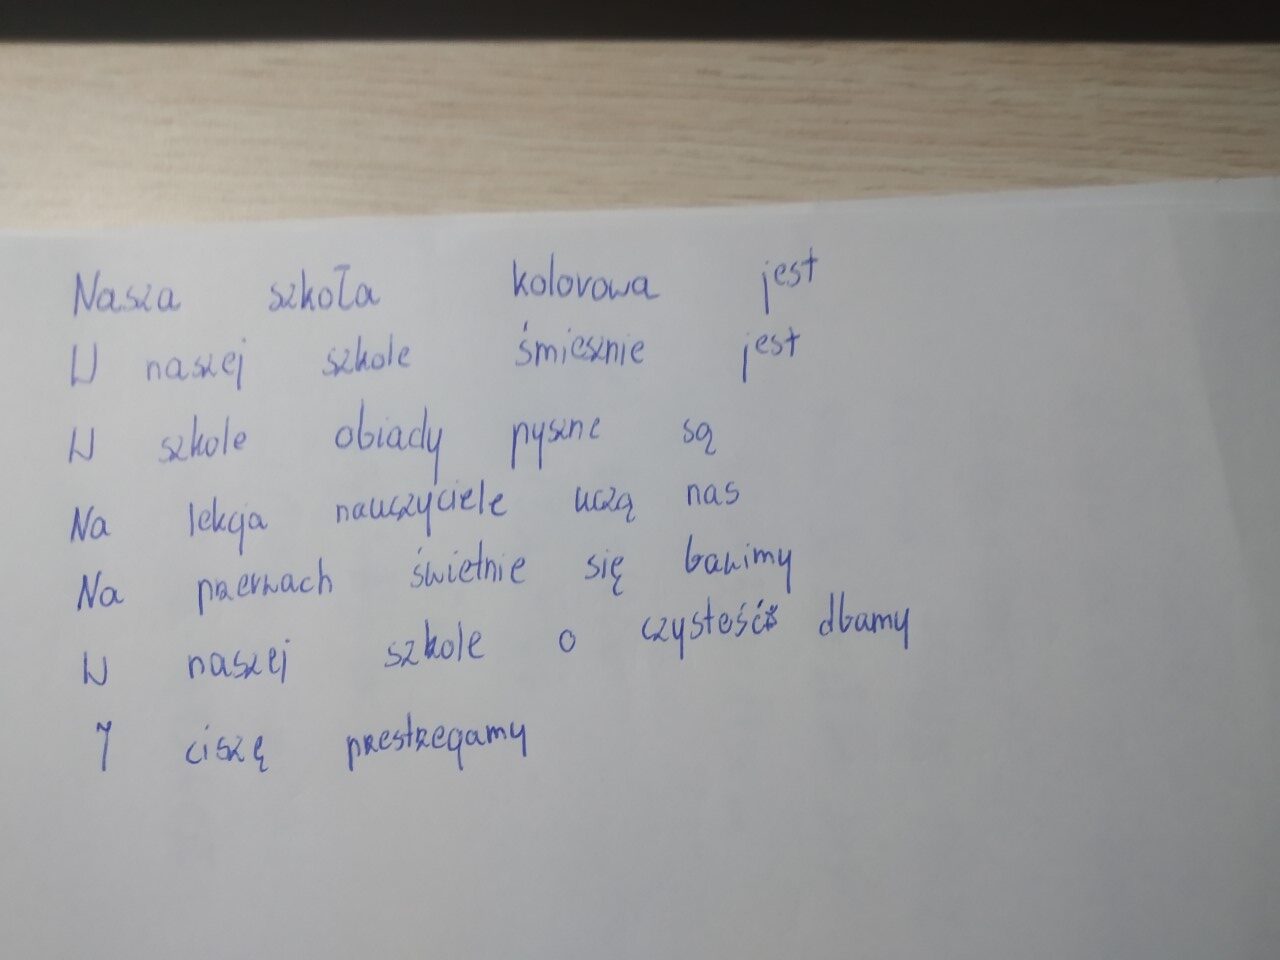 Nasza szkoła kolorowa jest
W naszej szkole śmiesznie jest
W szkole obiady pyszne są
Na lekcja nauczyciele uczą nas
Na przerwach świetnie się bawimy
W naszej szkole o czystość dbamy
I ciszę przestrzegamy